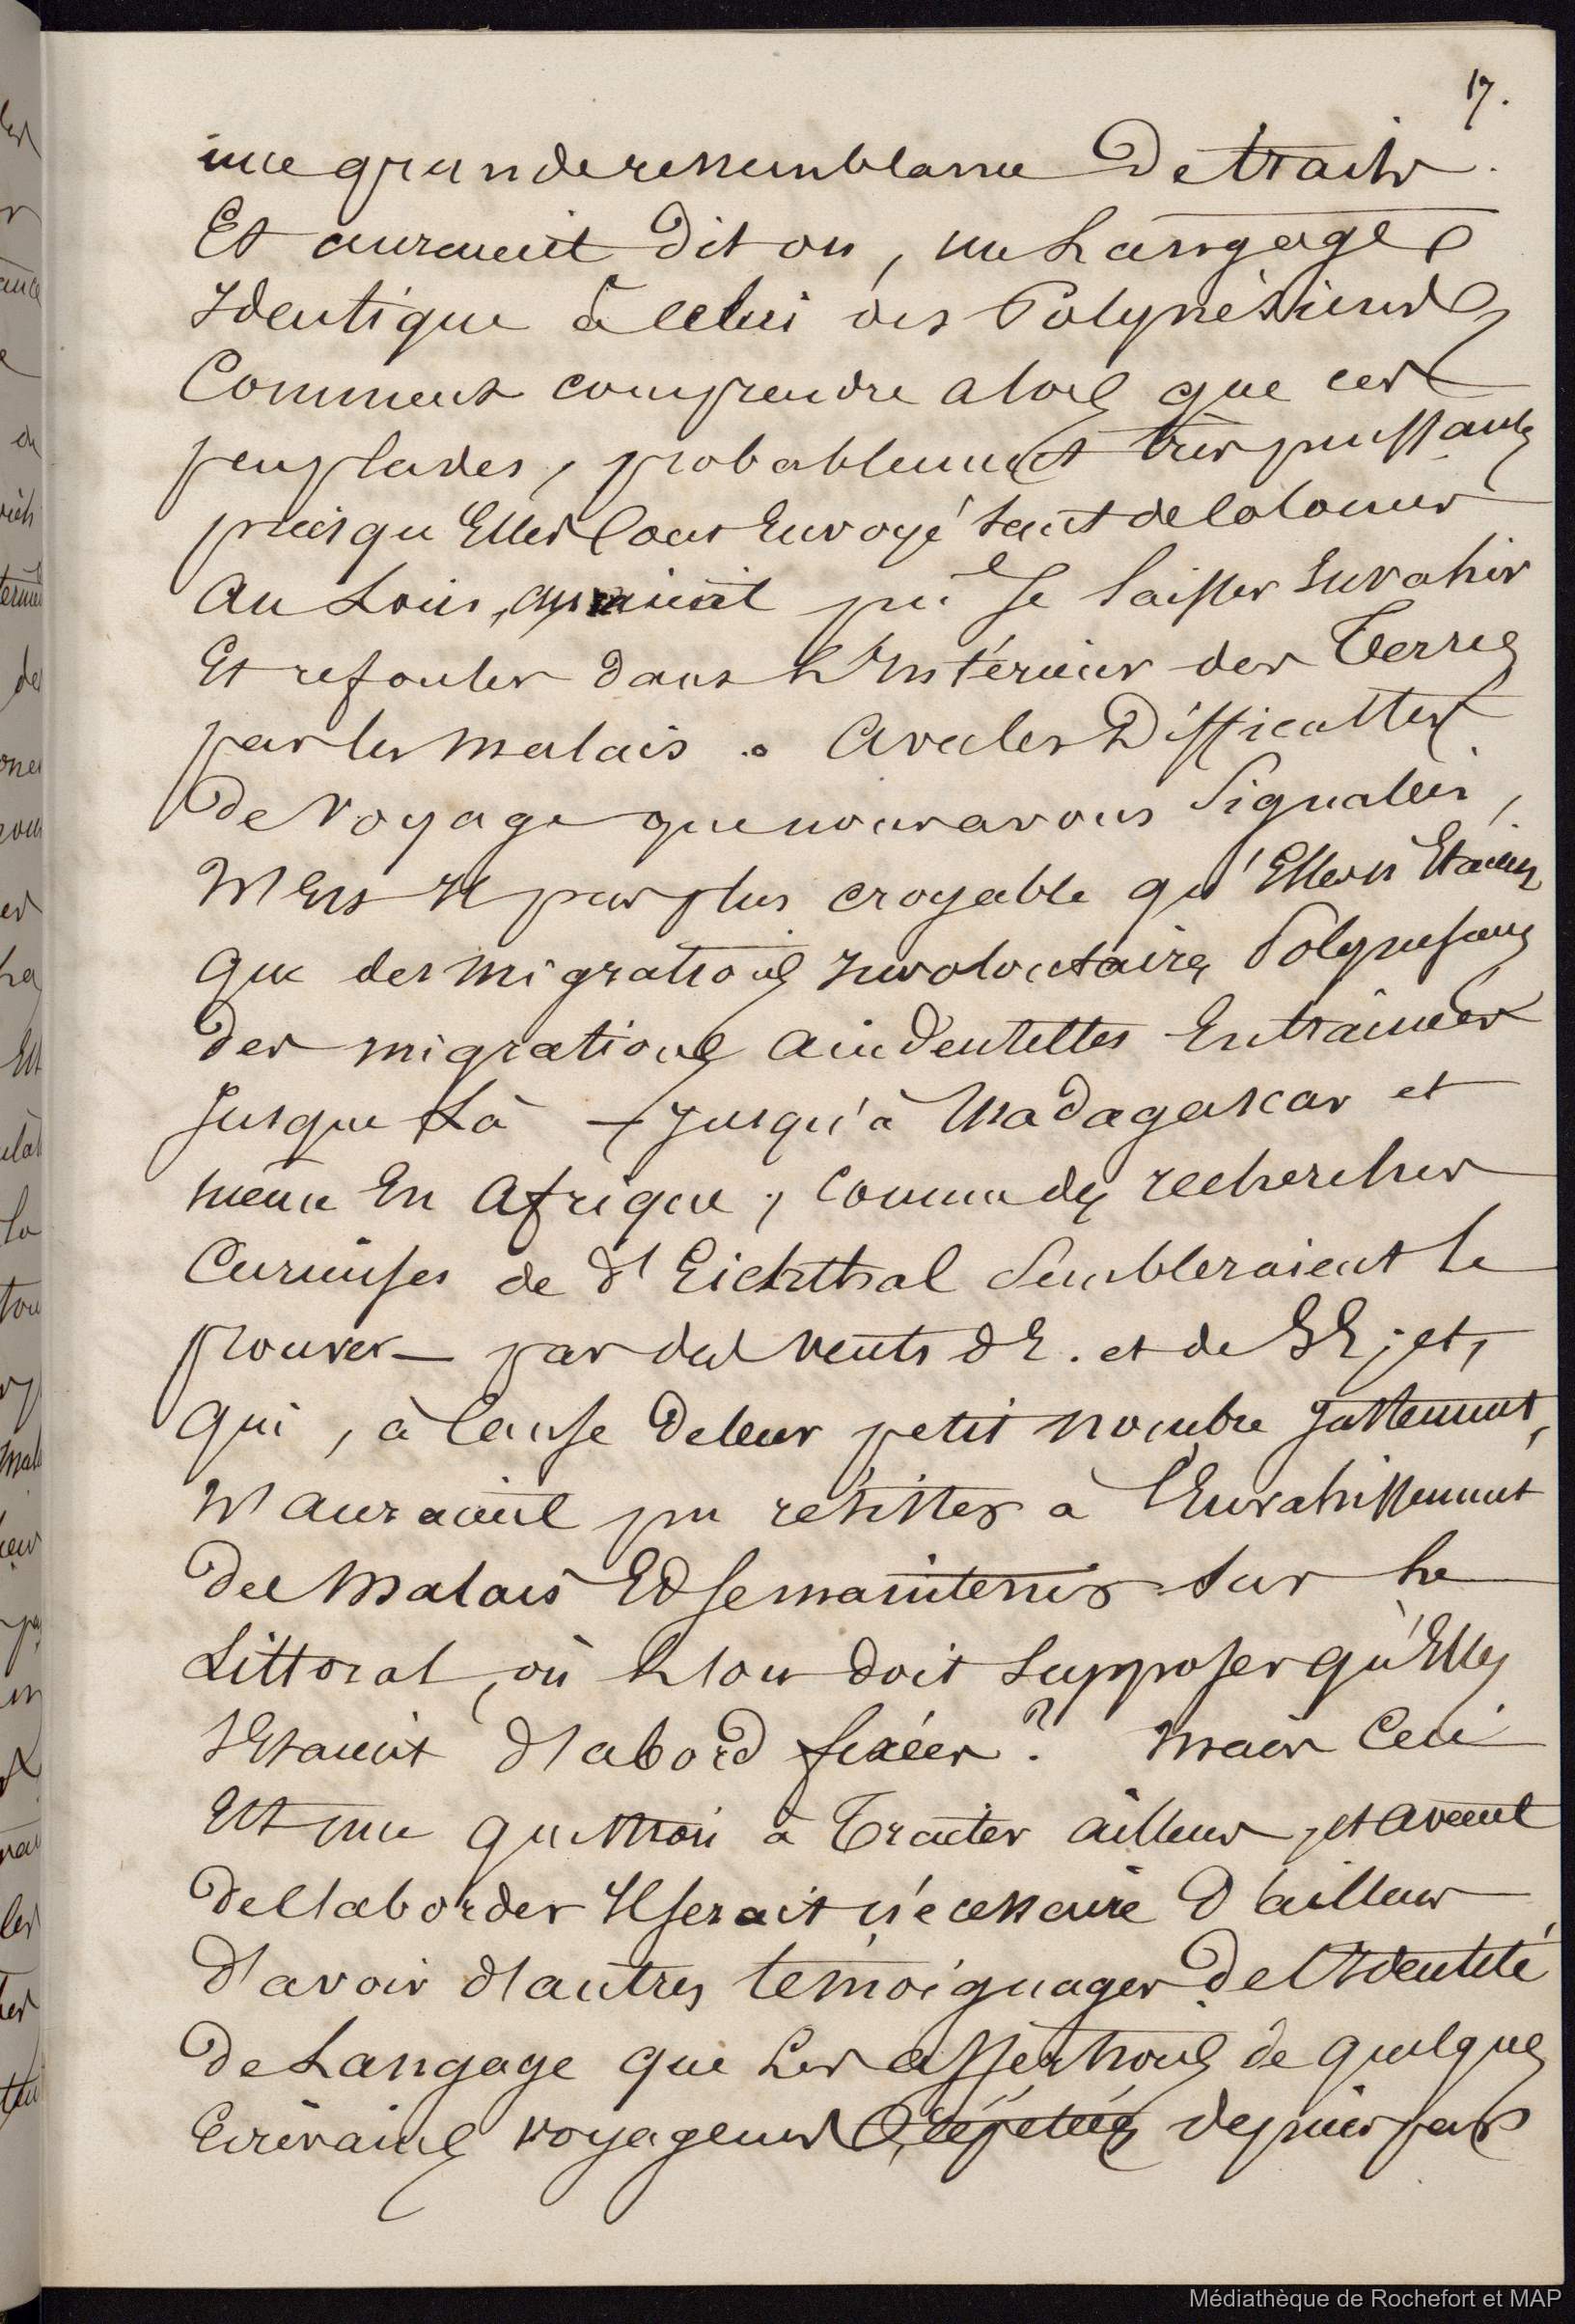 17.
une grande ressemblance de traits.
Et auraient dit on, un Langage
Identique à celui des Polynésiens
Comment comprendre alors que ces
peuplades, probablement très puissantes
puisqu'Elles ont Envoyé tant de Colonies
Au Loin, auraient pu se laisser Envahir
Et refouler dans L'Intérieur des Terres
par les Malais. Avec les Difficultés
De Voyage que nous avons Signalées,
N'Est Il pas plus croyable qu'Elles n'Etaient
que des migrations Involontaires Polynésiennes
des migrations accidentelles Entrainées
Jusque Là – Jusqu'à Madagascar et
même En Afrique, comme des recherches
Curieuses de d'Eichthal Sembleraient le
prouver – par des vents d'E. et de SE; et,
qui, à Cause de leur petit nombre Justement,
N'auraient pu résister à l'Envahissement
des Malais Et se maintenir sur le
Littoral, où L'on doit supposer qu'Elles
s'Etaient d'abord fixées? Mais Ceci
Est une question à Traiter ailleurs, et avant
de l'aborder Il serait nécessaire D'ailleurs
d'avoir d'autres témoignages de L'Identité
de Langage que Les assertions de quelques
Ecrivains voyageurs répétées depuis par
Médiathèque de Rochefort et MAP